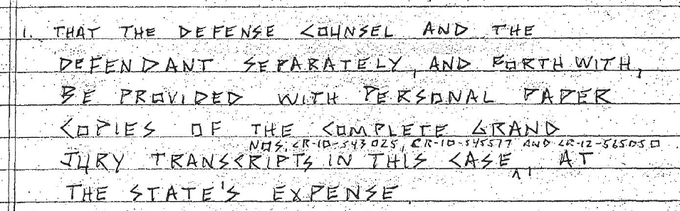 1. THAT THE DEFENSE COUNSEL AND THE
DEFENDANT SEPARATELY, AND FORTHWITH,
BE PROVIDED WITH PERSONAL PAPER
COPIES OF THE COMPLETE GRAND
NOS. CR-10-543025, CR-10-545577 AND CR-12-565050
JURY TRANSCRIPTS IN THIS CASE^, AT
THE STATE'S EXPENSE